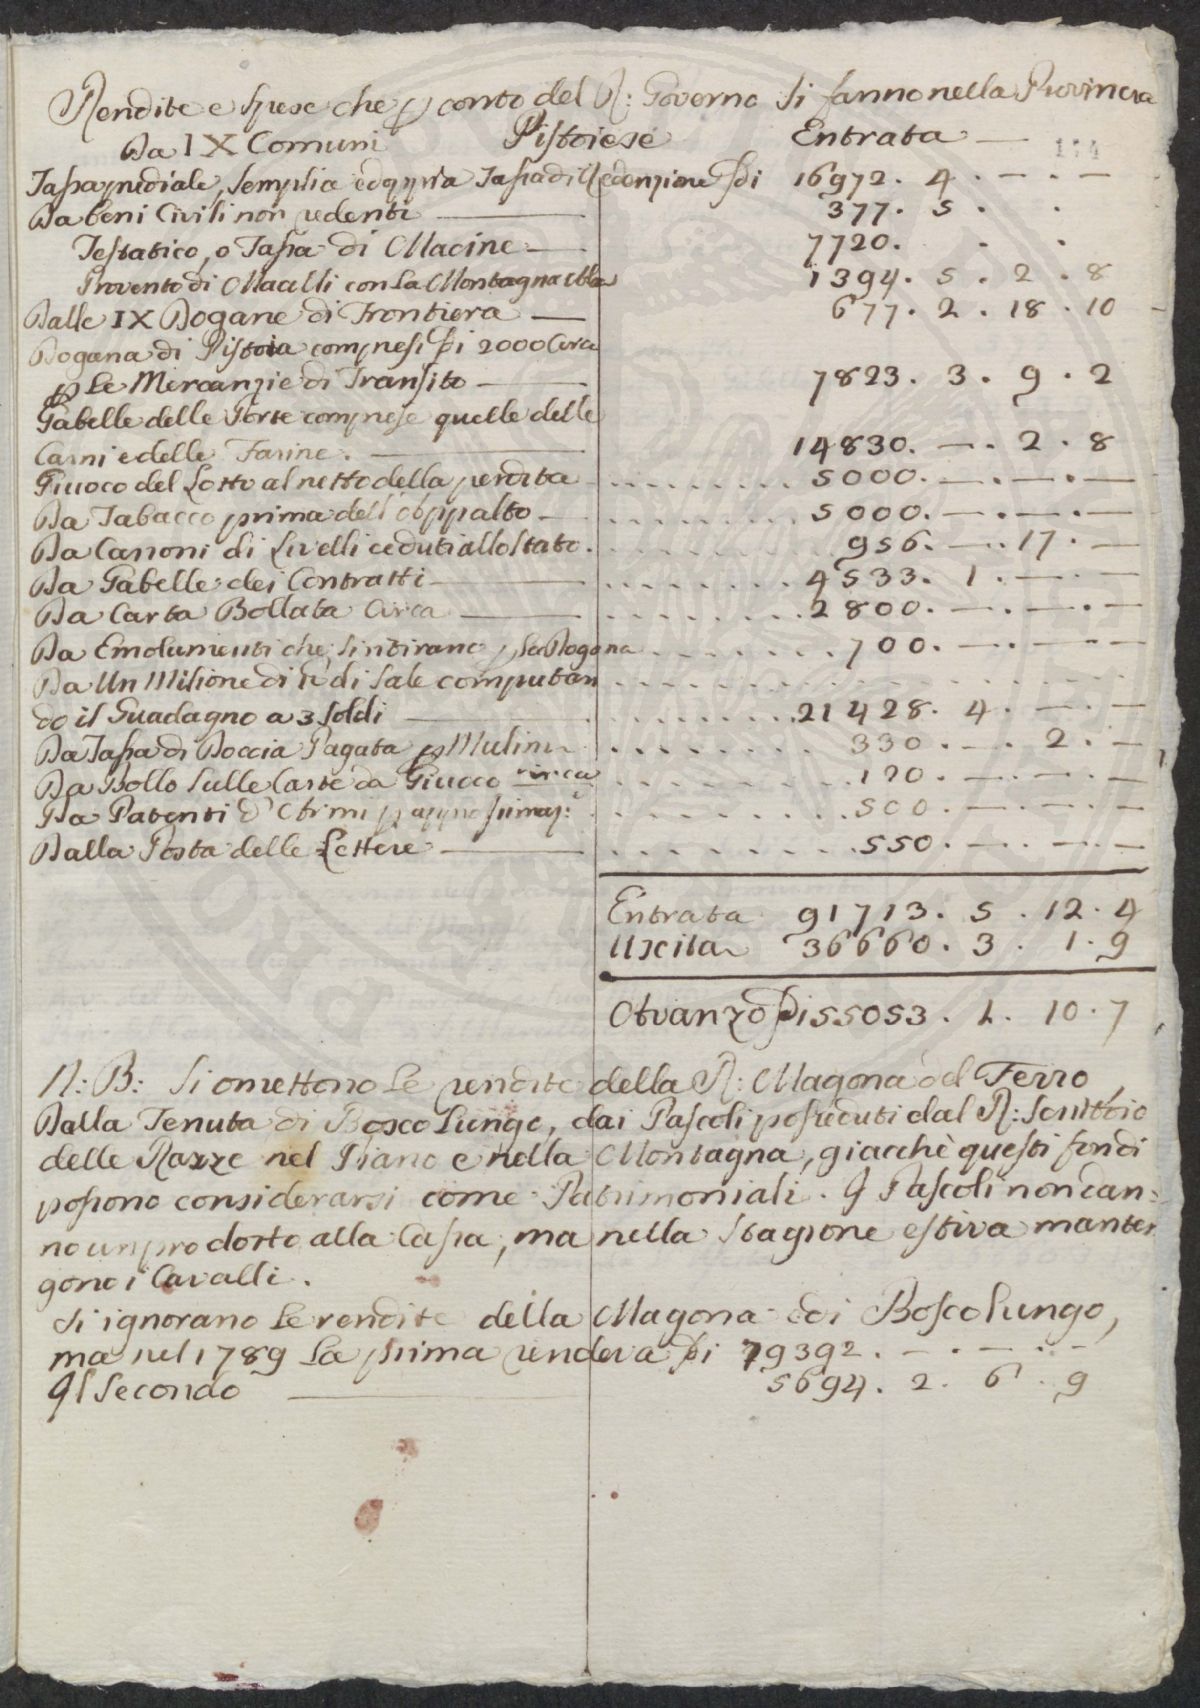 Rendite e Spese che p conto del R: Governo si fanno nella Provincia
Da IX Comuni Pistoiese Entrata —
Tassa prediale, semplia e doppia Tassa di Redenzione Di 16972. 4. — . —
Da beni Civili non redenti — 377. 5 . .
Testatico, o Tassa di Macine — 7720. . .
Provento di Macelli con la Montagna 1394. 5 . 2 . 8
Dalle IX Dogane di Frontiera — 677. 2 . 18 . 10
Dogana di Pistoia compresi Di 2000 Circa
p Le Mercanzie di Transito — 7823. 3 . 9 . 2
Gabelle delle Porte comprese quelle delle
Carni e delle Farine. — 14830. — . 2 . 8
Giuoco del Lotto al netto della perdita 5000. — . — . —
Da Tabacco prima dell'Appalto — 5000. — . — . —
Da Canoni di Livelli ceduti allo Stato. 956. — . 17 . —
Da Gabelle dei Contratti — 4533. 1 . — . —
Da Carta Bollata Circa — 2800. — . — . —
Da Emolumenti che si ritirano p la Dogana 700. — . — . —
Da Un Milione di di Sale computan
do il Guadagno a 3 soldi — 21428. 4 . — . —
Da Tassa di Doccia Pagata p Mulini 330. — . 2 . —
Da Bollo sulle Carte da Giuoco circa 120. — . — . —
Da Patenti d'Armi p approssimaz: 500. — . — . —
Dalla Posta delle Lettere — 550. — . — . —
Entrata 91713. 5 . 12 . 4
Uscita 36660. 3 . 1 . 9
Avanzo Di 55053. 2. 10 . 7
N: B: Si omettono Le rendite della R: Magona del Ferro,
Dalla Tenuta di Bosco Lungo, dai Pascoli posseduti dal R: Scrittoio
delle Razze nel Piano e nella Montagna, giacchè questi fondi
possono considerarsi come Patrimoniali. I Pascoli non dan=
no un prodotto alla Cassa, ma nella Stagione estiva manten
gono i Cavalli.
Si ignorano Le rendite della Magona e di Boscolungo,
ma nel 1789 La prima rendeva Di 79392. — . — . —
Il Secondo — 5694. 2 . 6 . 9